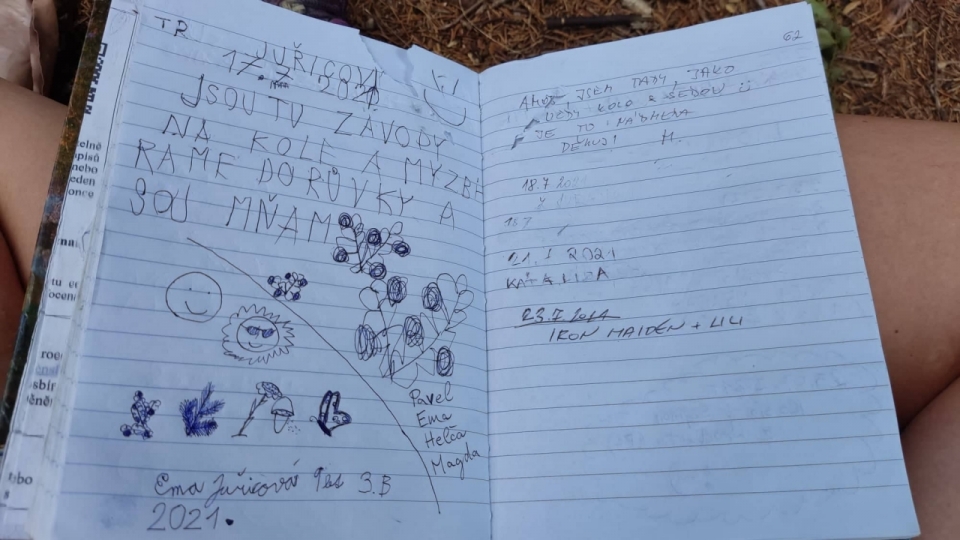 TR
JUŘICOVI
17.7 2021
JSOU TU ZÁVODY
NA KOLE A MYZBÍ
RAME BORŮVKY A
SOU MŇAM
Pavel
Ema
Helča
Magda
Ema Juřicová 9let 3.B
2021.
62
AHOJ, JSEM TADY, JAKO
VŽDY KOLO A
JE TO NÁDHERA
DĚKUJI H.
18.7 2021
21. 2021
KÁŤA LÍZA
23.7.2021
IRON MAIDEN + LILI
elně
episů
nebo
eden
once
tu
ocen
sbír